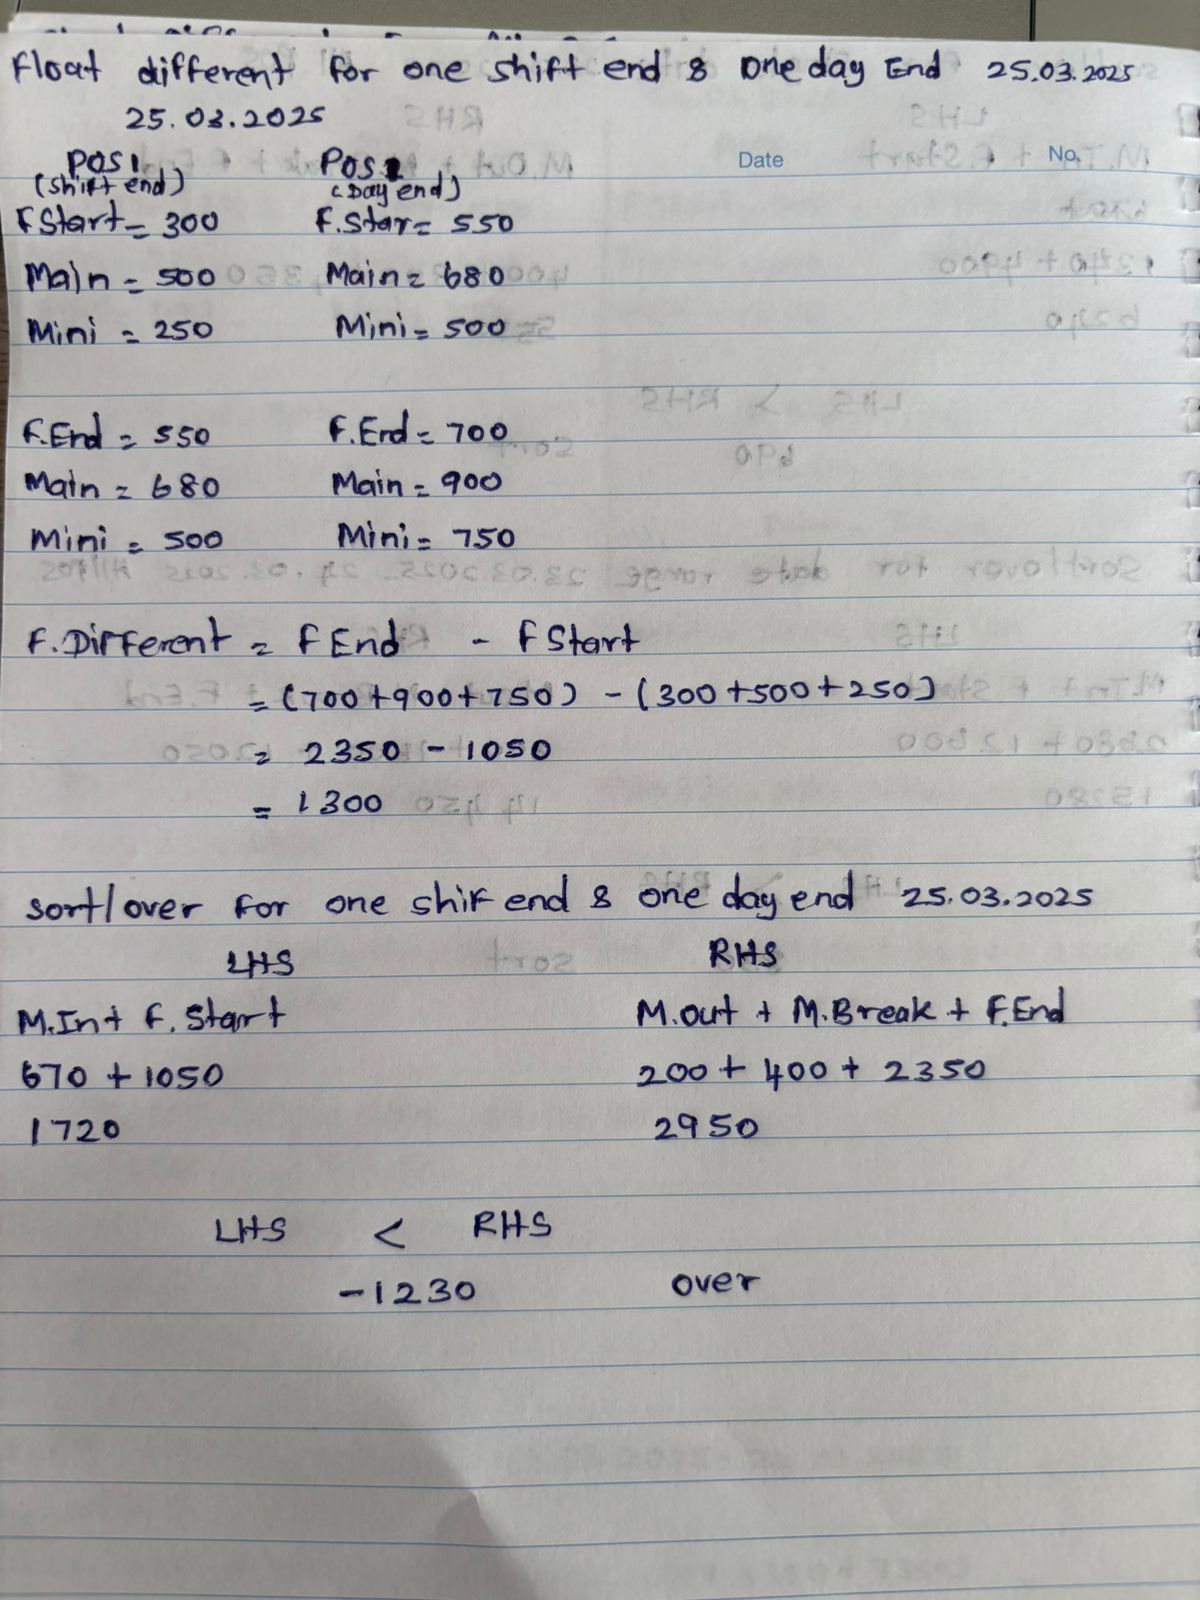 Float different for one shift end & one day End 25.03.2025
25.03.2025
Date No.
POS1 POS2
(Shift end) (Day end)
F Start = 300 F.Star = 550
Main = 500 Main = 680
Mini = 250 Mini = 500
F.End = 550 F.End = 700
Main = 680 Main = 900
Mini = 500 Mini = 750
F.Different = F End - F Start
= (700+900+750) - (300+500+250)
= 2350 - 1050
= 1300
sort/over for one shif end & one day end 25.03.2025
LHS RHS
M.In + F.Start M.out + M.Break + F.End
670 + 1050 200 + 400 + 2350
1720 2950
LHS < RHS
-1230 over